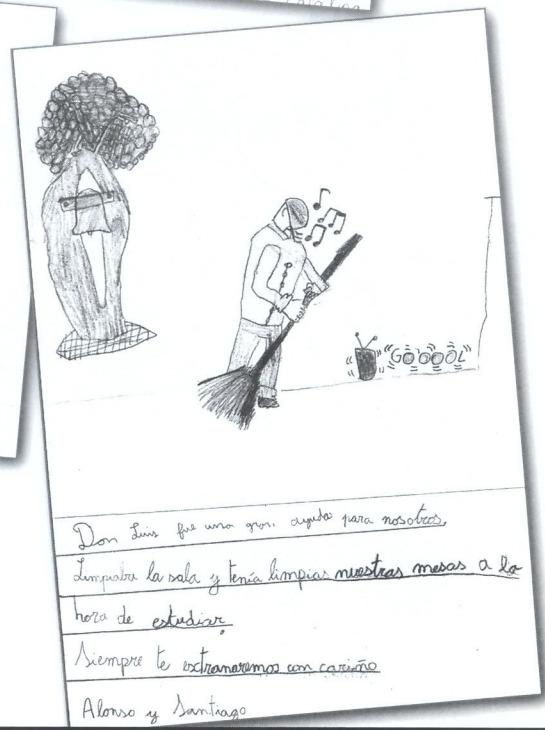 "GOOOOL"
Don Luis fue una gran ayuda para nosotros,
Limpiaba la sala y tenía limpias nuestras mesas a la
hora de estudiar.
Siempre te extranaremos con cariño
Alonso y Santiago